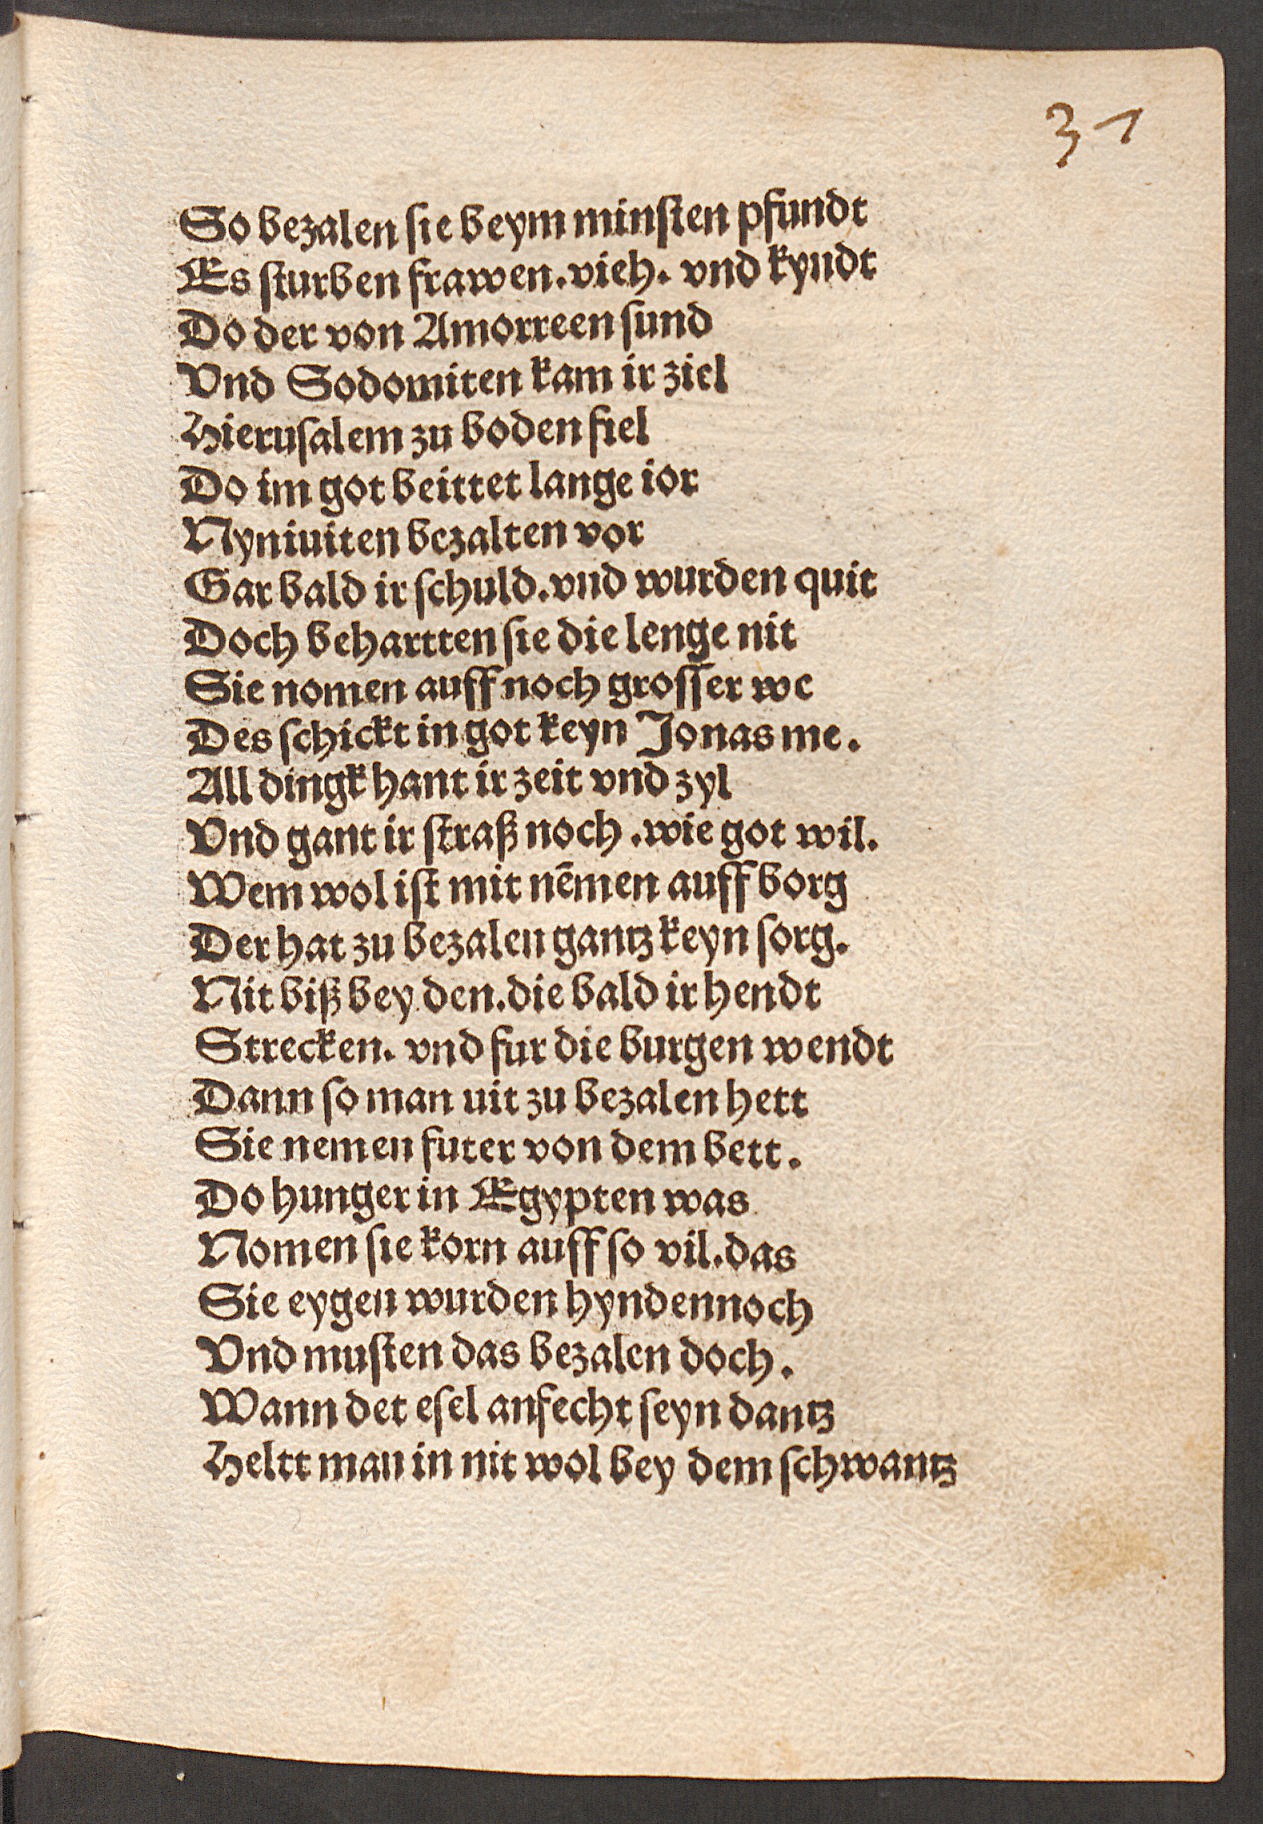 31
So bezalen sie beym minsten pfundt
Es sturben frawen. vieh. vnd kyndt
Do der von Amorreen sund
Vnd Sodomiten kam ir ziel
Hierusalem zu boden fiel
Do im got beittet lange ior
Nyniuiten bezalten vor
Gar bald ir schuld. vnd wurden quit
Doch behartten sie die lenge nit
Sie nomen auff noch grosser we
Des schickt in got keyn Jonas me.
All dingk hant ir zeit vnd zyl
Vnd gant ir straß noch. wie got wil.
Wem wol ist mit nēmen auff borg
Der hat zu bezalen gantz keyn sorg.
Nit biß bey den. die bald ir hendt
Strecken. vnd fur die burgen wendt
Dann so man uit zu bezalen hett
Sie nemen futer von dem bett.
Do hunger in Egypten was
Nomen sie korn auff so vil. das
Sie eygen wurden hyndennoch
Vnd musten das bezalen doch.
Wann det esel anfecht seyn dantz
Heltt man in nit wol bey dem schwantz